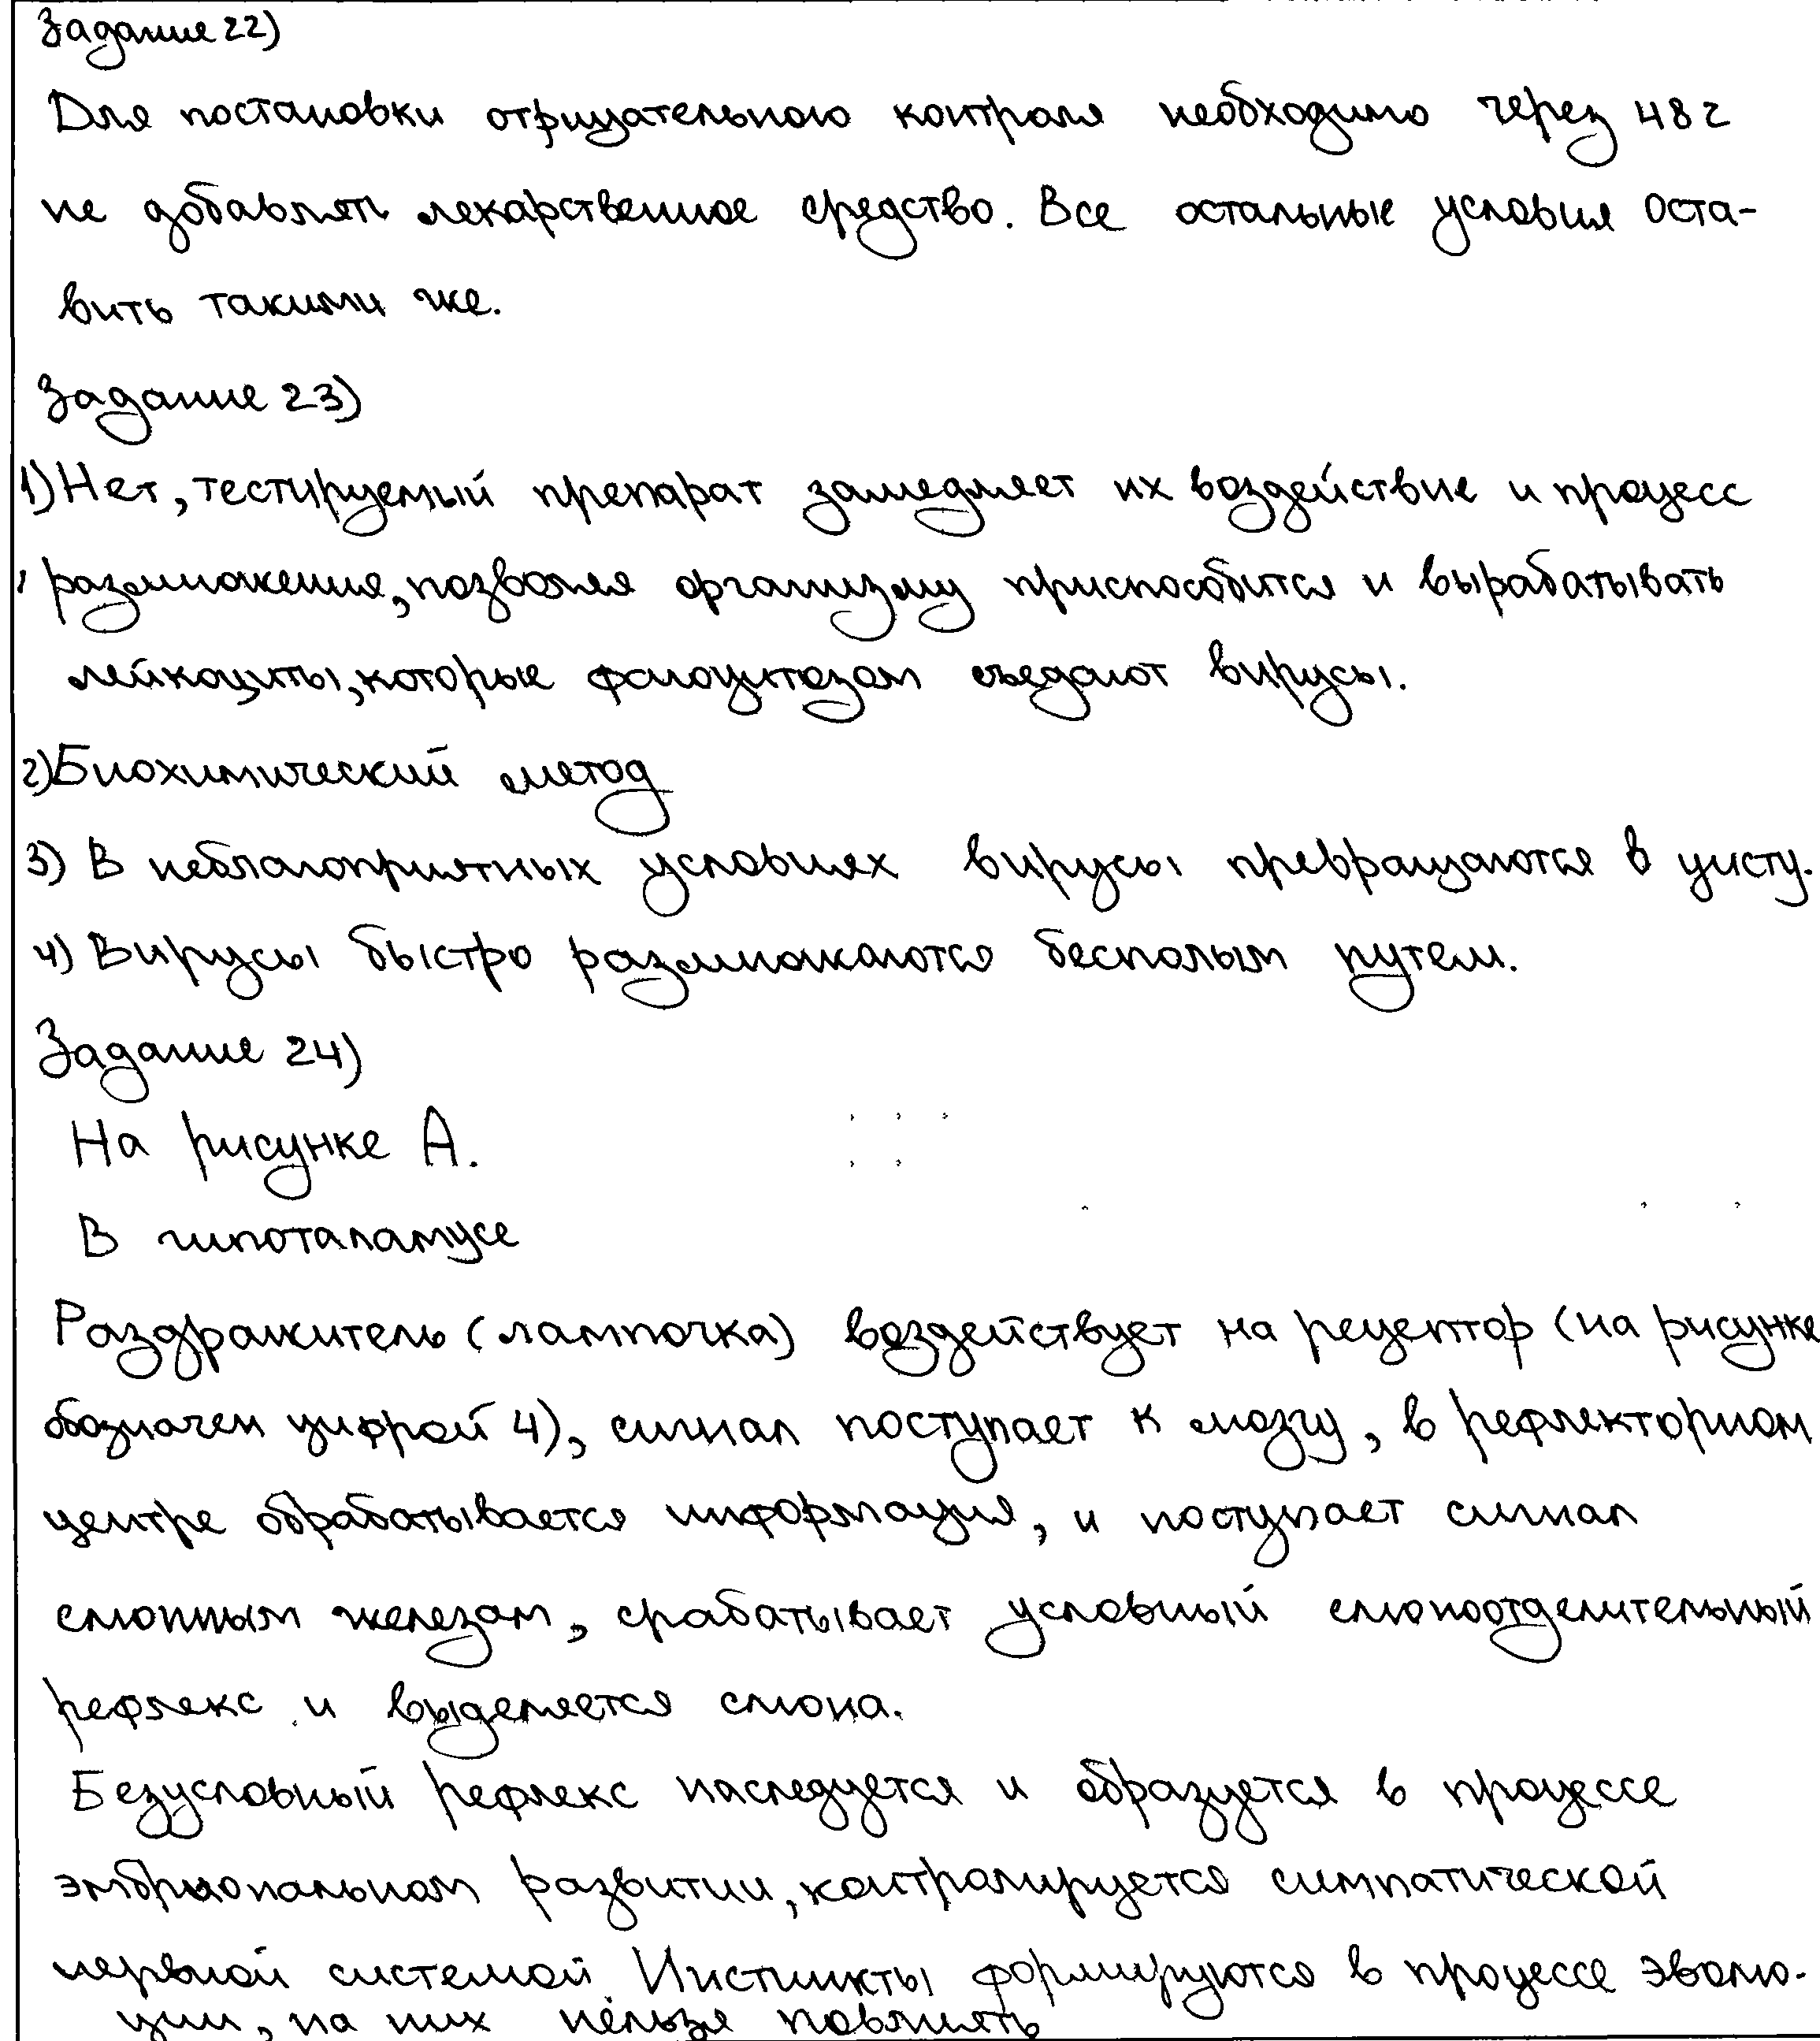 Задание 22)
Для постановки отрицательного контроля необходимо через 48 г
не добавлять лекарственное средство. Все остальные условия оста-
вить такими же.
Задание 23)
1) Нет, тестируемый препарат замедляет их воздействие и процесс
размножения, позволяя организму приспособится и вырабатывать
лейкоциты, которые фагоцитозом съедают вирусы.
2) Биохимический метод
3) В неблагоприятных условиях вирусы превращаются в цисту.
4) Вирусы быстро размножаются бесполым путем.
Задание 24)
На рисунке А.
В гипоталамусе
Раздражитель (лампочка) воздействует на рецептор (на рисунке
обозначен цифрой 4), сигнал поступает к мозгу, в рефлекторном
центре обрабатывается информация, и поступает сигнал
слюнным железам, срабатывает условный слюноотделительный
рефлекс и выделяется слюна.
Безусловный рефлекс наследуется и образуется в процессе
эмбриональном развитии, контролируется симпатической
нервной системой. Инстинкты формируются в процессе эволю-
ции, на них нельзя повлиять